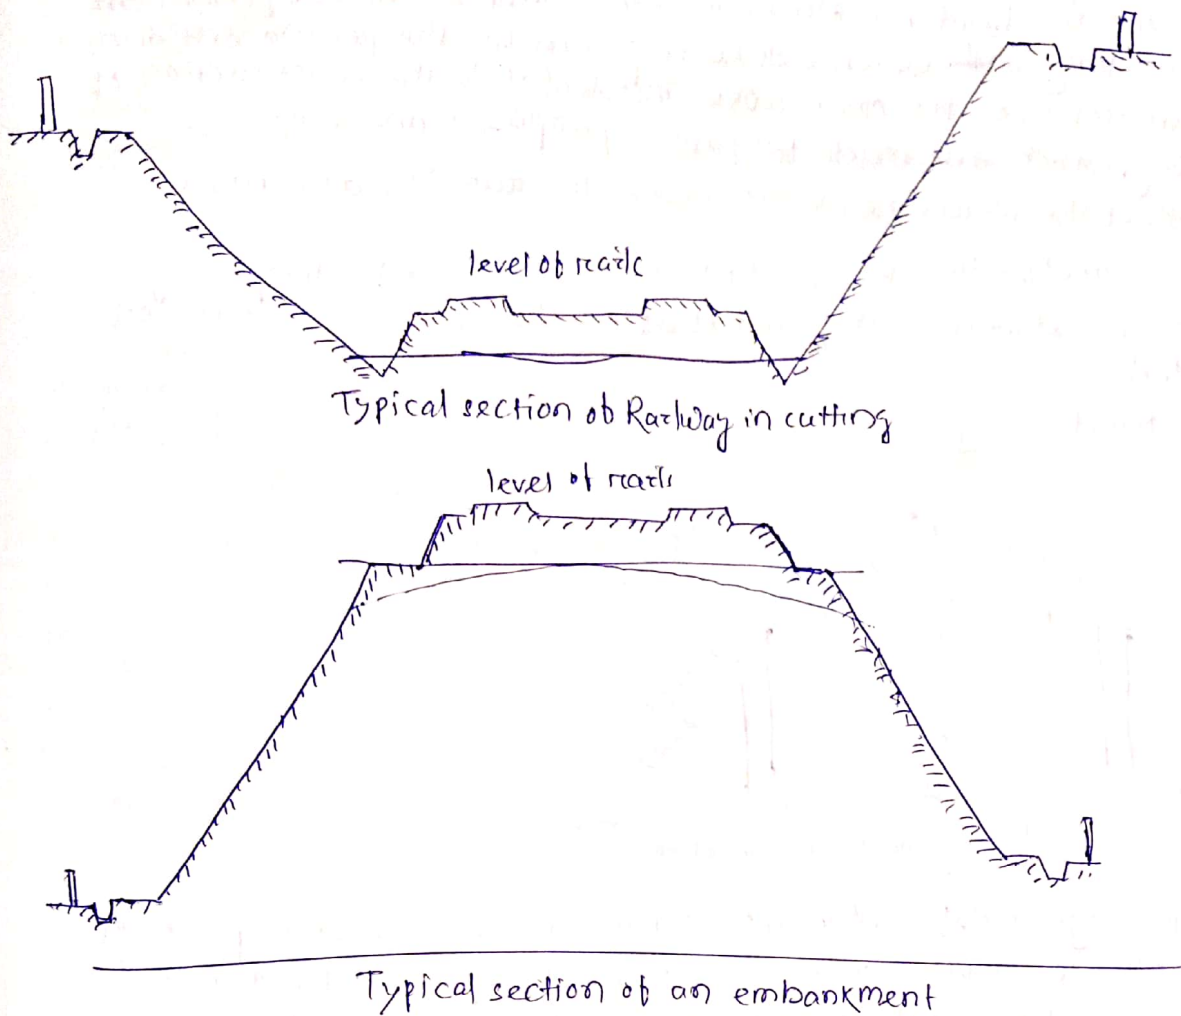 level of rails
Typical section of Railway in cutting
level of rails
Typical section of an embankment